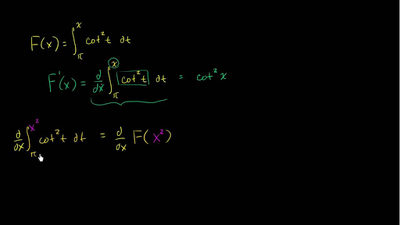 F(x) = ∫_π^x cot²t dt
F'(x) = d/dx ∫_π^x cot²t dt = cot²x
d/dx ∫_π^{x²} cot²t dt = d/dx F(x²)